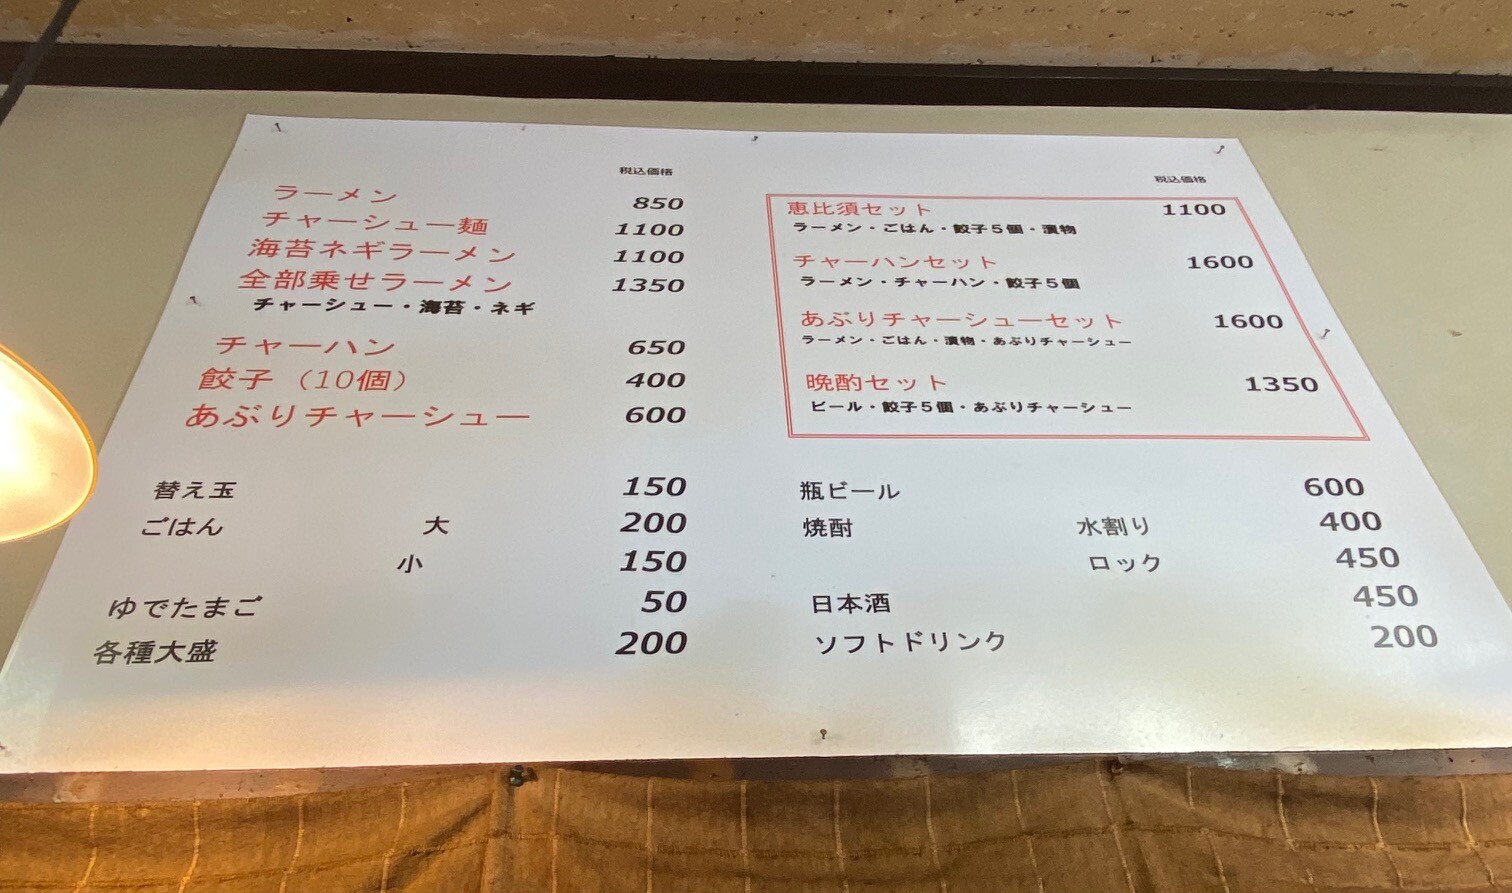 税込価格
ラーメン 850
チャーシュー麺 1100
海苔ネギラーメン 1100
全部乗せラーメン 1350
チャーシュー・海苔・ネギ
チャーハン 650
餃子（10個） 400
あぶりチャーシュー 600
替え玉 150
ごはん 大 200
小 150
ゆでたまご 50
各種大盛 200
税込価格
恵比須セット 1100
ラーメン・ごはん・餃子５個・漬物
チャーハンセット 1600
ラーメン・チャーハン・餃子５個
あぶりチャーシューセット 1600
ラーメン・ごはん・漬物・あぶりチャーシュー
晩酌セット 1350
ビール・餃子５個・あぶりチャーシュー
瓶ビール 600
焼酎 水割り 400
ロック 450
日本酒 450
ソフトドリンク 200